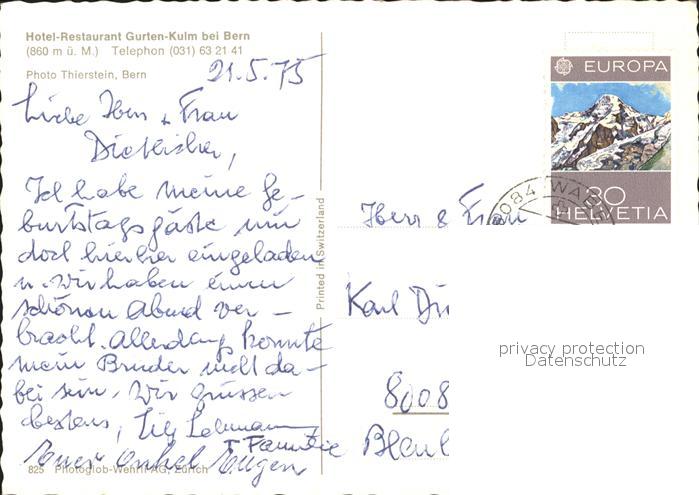 Hotel-Restaurant Gurten-Kulm bei Bern
(860 m ü. M.) Telephon (031) 63 21 41
Photo Thierstein, Bern
21.5.75
Liebe Herr + Frau
Ich habe meine Ge-
burtstagsgäste nun
doch hierher eingeladen
u. wir haben einen
schönen Abend ver-
bracht. Allerdings konnte
mein Bruder nicht da-
bei sein. Wir grüssen
bestens, Lehmann
+ Familie
Euer Onkel Eugen
825 Photoglob-Wehrli AG, Zürich
Printed in Switzerland
EUROPA
80
HELVETIA
8084 WA
Herr & Frau
Karl Di
8008
privacy protection
Datenschutz